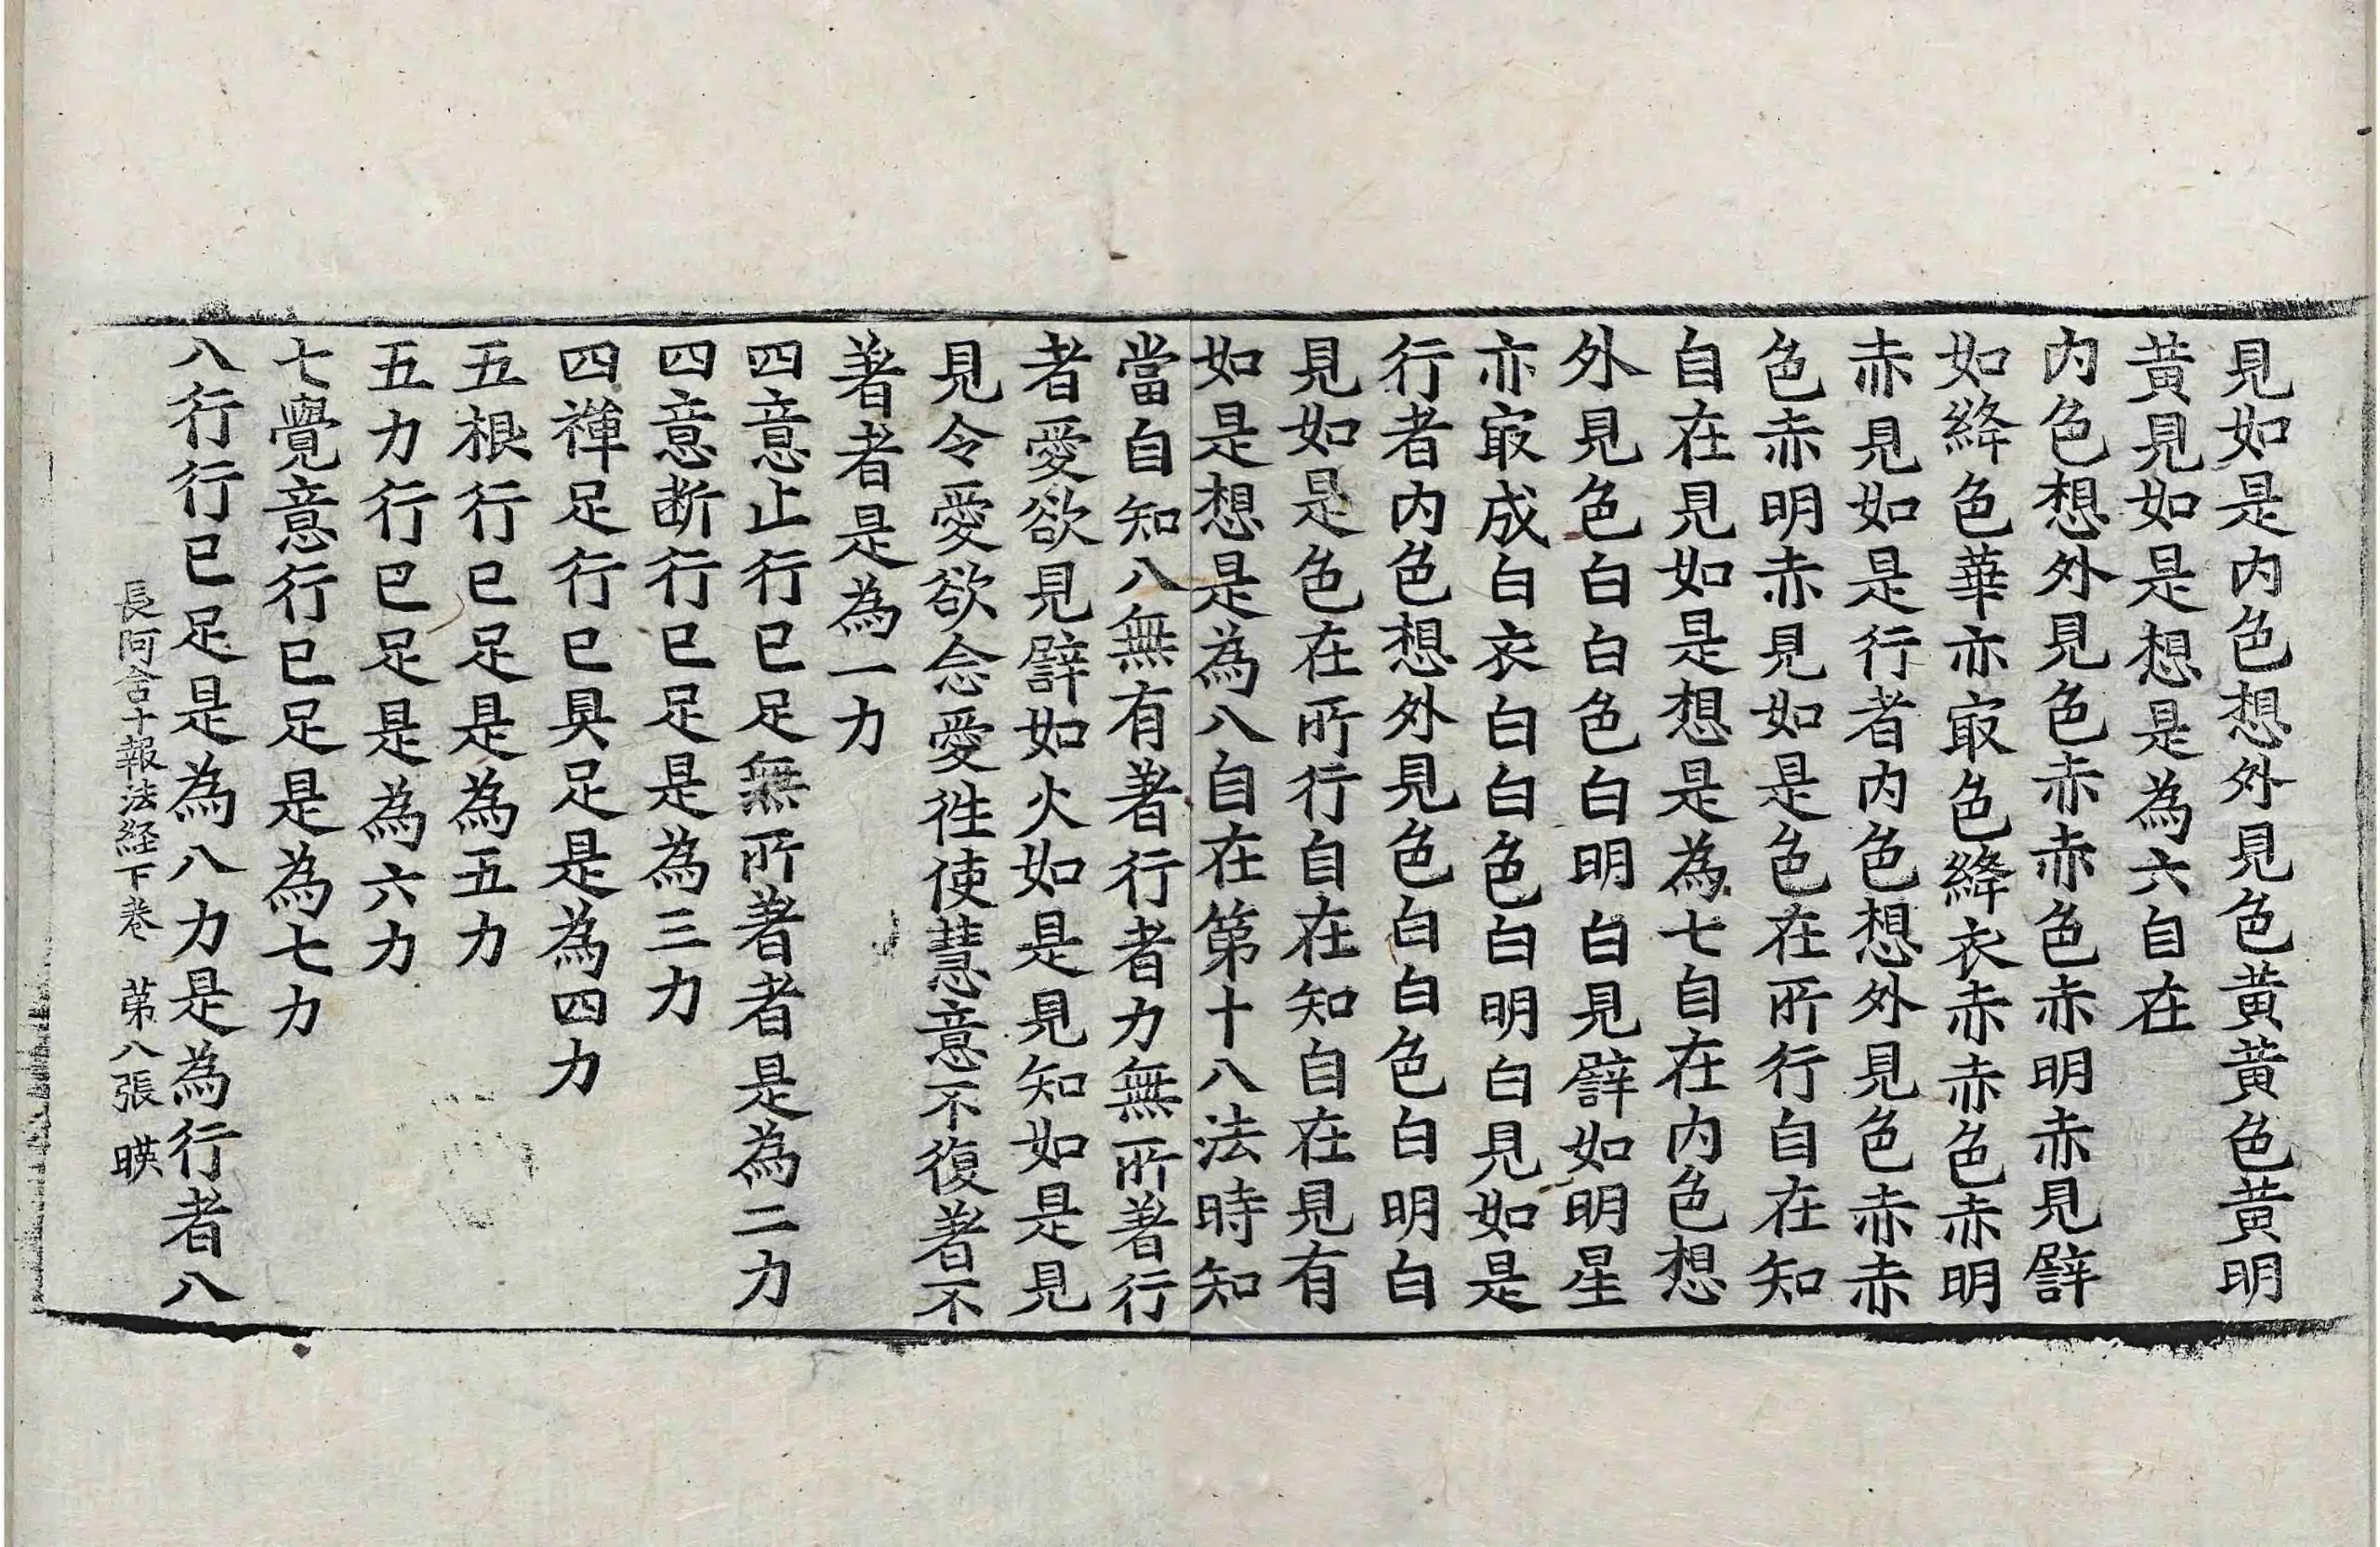 見如是内色想外見色黄黄色黄明
黄見如是想是為六自在
内色想外見色赤赤色赤明赤見譬
如絳色華亦㝡色絳衣赤赤色赤明
赤見如是行者内色想外見色赤赤
色赤明赤見如是色在所行自在知
自在見如是想是為七自在内色想
外見色白白色白明白見譬如明星
亦㝡成白衣白白色白明白見如是
行者内色想外見色白白色白明白
見如是色在所行自在知自在見有
如是想是為八自在第十八法時知
當自知八無有著行者力無所著行
者愛欲見譬如火如是見知如是見
見令愛愛欲念愛徃使慧意不復著不
著者是為一力
四意止行已足無所著者是為二力
四意断行已足是為三力
四禪足行已具足是為四力
五根行已足是為五力
五力行已足是為六力
七覺意行已足是為七力
八行行已足是為八力是為行者八
長阿含十報法経下卷　第八張　暎